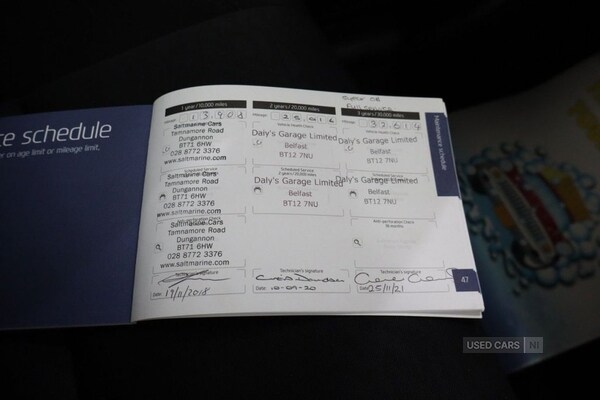 ce schedule
er on age limit or mileage limit.
1 year/10,000 miles
Mileage 13,908
Saltmarine Cars
Tamnamore Road
Dungannon
BT71 6HW
028 8772 3376
www.saltmarine.com
Saltmarine Cars
Tamnamore Road
Dungannon
BT71 6HW
028 8772 3376
www.saltmarine.com
Saltmarine Cars
Tamnamore Road
Dungannon
BT71 6HW
028 8772 3376
www.saltmarine.com
Technician's signature
Date: 19/11/2018
2 years/20,000 miles
Mileage
Vehicle Health Check
Daly's Garage Limited
Belfast
BT12 7NU
Scheduled Service
2 years/20,000 miles
Daly's Garage Limited
Belfast
BT12 7NU
Technician's signature
Date:
Full service
3 years/30,000 miles
Mileage
Vehicle Health Check
Daly's Garage Limited
Belfast
BT12 7NU
Scheduled Service
Daly's Garage Limited
Belfast
BT12 7NU
Anti-perforation Check
Technician's signature
Date: 25/11/21
Maintenance schedule
47
USED CARS NI